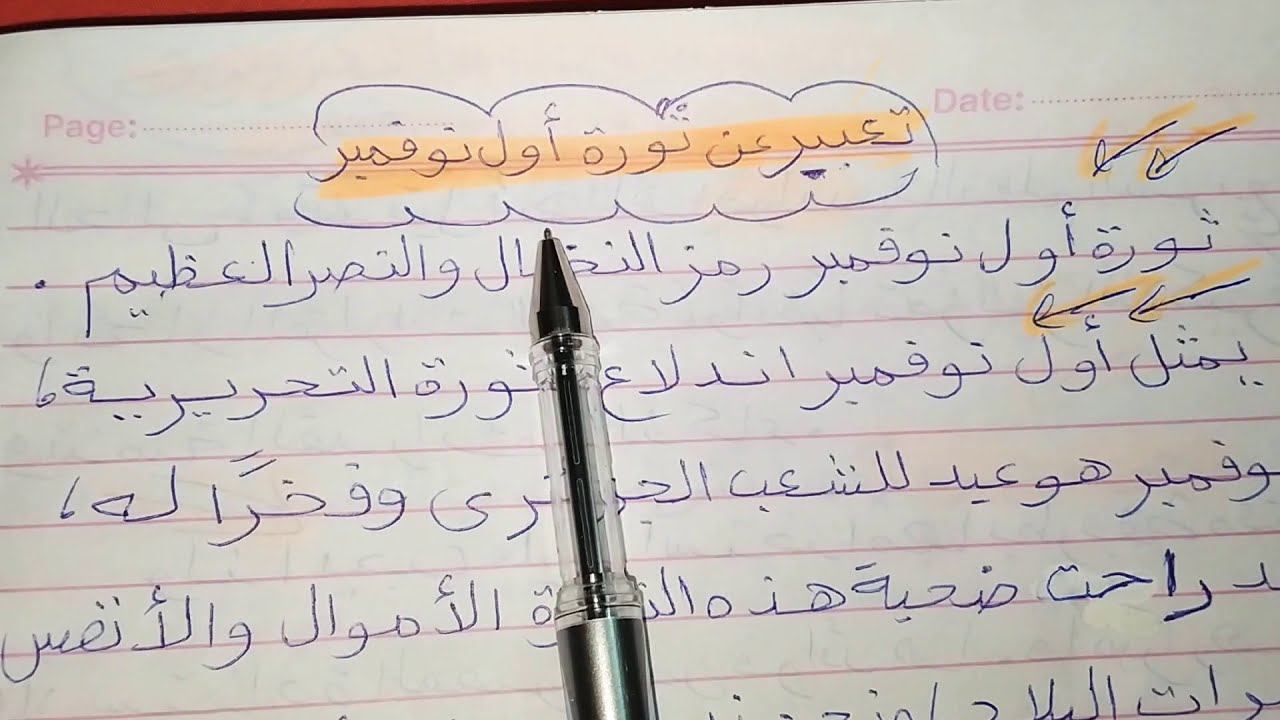 Page:
Date:
تعبير عن ثورة أول نوفمبر
ثورة أول نوفمبر رمز النضال والنصر العظيم .
يمثل أول نوفمبر اندلاع ثورة التحريرية،
وفمبر هو عيد للشعب وفخرًا له،
راحت ضحية هذه الأموال والأنفس
البلاد